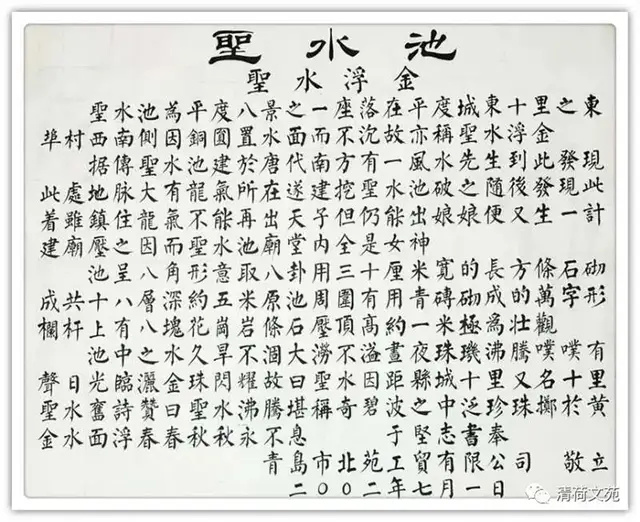 聖水池
聖水浮金
聖水池為平度八景之一座落在平度城東十里之東
埠村西南側因銅圓置水面而不沉故亦稱聖水浮金
据傳聖水池建於唐代南方有一風水先生到此發現
此處地脉大有龍氣所在遂建挖聖水池破之隨後發現此
着雖鎮住龍氣不能再出天子但仍能出娘娘便又生一計
建廟壓之因而聖水池廟堂內全是女神
池呈八角形意取八卦用三十厘米寬的長方條石砌
成共十八層深約五米原池周圍有用青磚砌成的萬字形
欄杆上有八塊花崗岩條石壓頂高約一米極為壯觀
池中之水久旱不涸大澇不溢晝夜珠璣沸騰噗噗有
聲日光臨灑金珠閃耀故曰聖水因距縣城十里又名十里
聖水奮詩贊曰聖水沸騰堪稱奇碧波之中泛珍珠擲於黄
金水面浮春春秋秋永不息 于堅志書奉
青島市北苑工貿有限公司 敬立
二00二年七月一日
清荷文苑